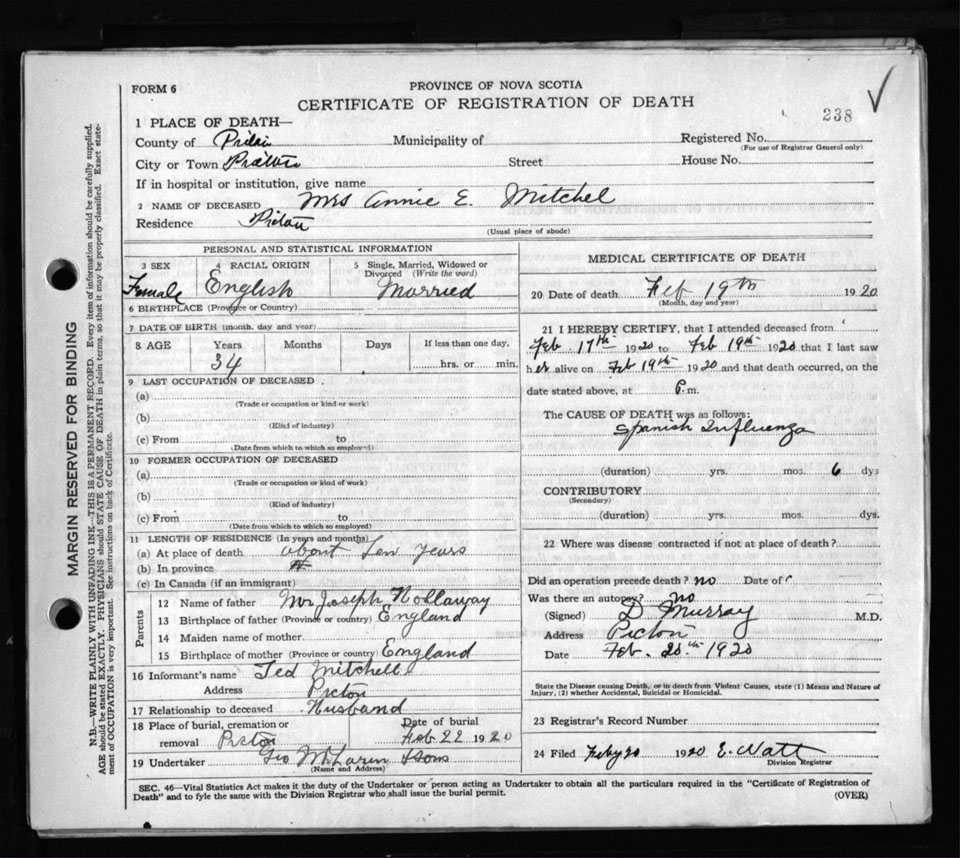 PROVINCE OF NOVA SCOTIA
FORM 6
CERTIFICATE OF REGISTRATION OF DEATH
238
1 PLACE OF DEATH—
County of Municipality of Registered No.
(For use of Registrar General only)
City or Town Street House No.
If in hospital or institution, give name
2 NAME OF DECEASED Mrs Annie E. Mitchel
Residence Pictou
(Usual place of abode)
PERSONAL AND STATISTICAL INFORMATION
3 SEX Female
4 RACIAL ORIGIN English
5 Single, Married, Widowed or Divorced (Write the word) Married
6 BIRTHPLACE (Province or Country)
7 DATE OF BIRTH (month, day and year)
8 AGE Years Months Days If less than one day,
34 hrs. or min.
9 LAST OCCUPATION OF DECEASED
(a)
(Trade or occupation or kind or work)
(b)
(Kind of industry)
(c) From to
(Date from which to which so employed)
10 FORMER OCCUPATION OF DECEASED
(a)
(Trade or occupation or kind of work)
(b)
(Kind of industry)
(c) From to
(Date from which to which so employed)
11 LENGTH OF RESIDENCE (In years and months)
(a) At place of death about Ten years
(b) In province "
(c) In Canada (if an immigrant)
Parents
12 Name of father Mr Joseph Hollaway
13 Birthplace of father (Province or country) England
14 Maiden name of mother
15 Birthplace of mother (Province or country) England
16 Informant's name Ted Mitchell
Address Picton
17 Relationship to deceased Husband
18 Place of burial, cremation or Date of burial
removal Picton Feb 22 1920
19 Undertaker Geo McLaren & Sons
(Name and Address)
MEDICAL CERTIFICATE OF DEATH
20 Date of death Feb 19th 1920
(Month, day and year)
21 I HEREBY CERTIFY, that I attended deceased from
Feb 17th 1920 to Feb 19th 1920 that I last saw
her alive on Feb 19th 1920 and that death occurred, on the
date stated above, at P.m.
The CAUSE OF DEATH was as follows:
Spanish Influenza
(duration) yrs. mos. 6 dys
CONTRIBUTORY
(Secondary)
(duration) yrs. mos. dys.
22 Where was disease contracted if not at place of death?
Did an operation precede death? no Date of
Was there an autopsy? no
(Signed) D Murray M.D.
Address Picton
Date Feb. 20th 1920
State the Disease causing Death, or in death from Violent Causes, state (1) Means and Nature of
Injury, (2) whether Accidental, Suicidal or Homicidal.
23 Registrar's Record Number
24 Filed Feby 20 1920 E. Watt
Division Registrar
SEC. 46—Vital Statistics Act makes it the duty of the Undertaker or person acting as Undertaker to obtain all the particulars required in the "Certificate of Registration of
Death" and to fyle the same with the Division Registrar who shall issue the burial permit.
(OVER)
MARGIN RESERVED FOR BINDING
N.B.—WRITE PLAINLY WITH UNFADING INK—THIS IS A PERMANENT RECORD. Every item of information should be carefully supplied.
AGE should be stated EXACTLY. PHYSICIANS should STATE CAUSE OF DEATH in plain terms, so that it may be properly classified. Exact state-
ment of OCCUPATION is very important. See instructions on back of Certificate.